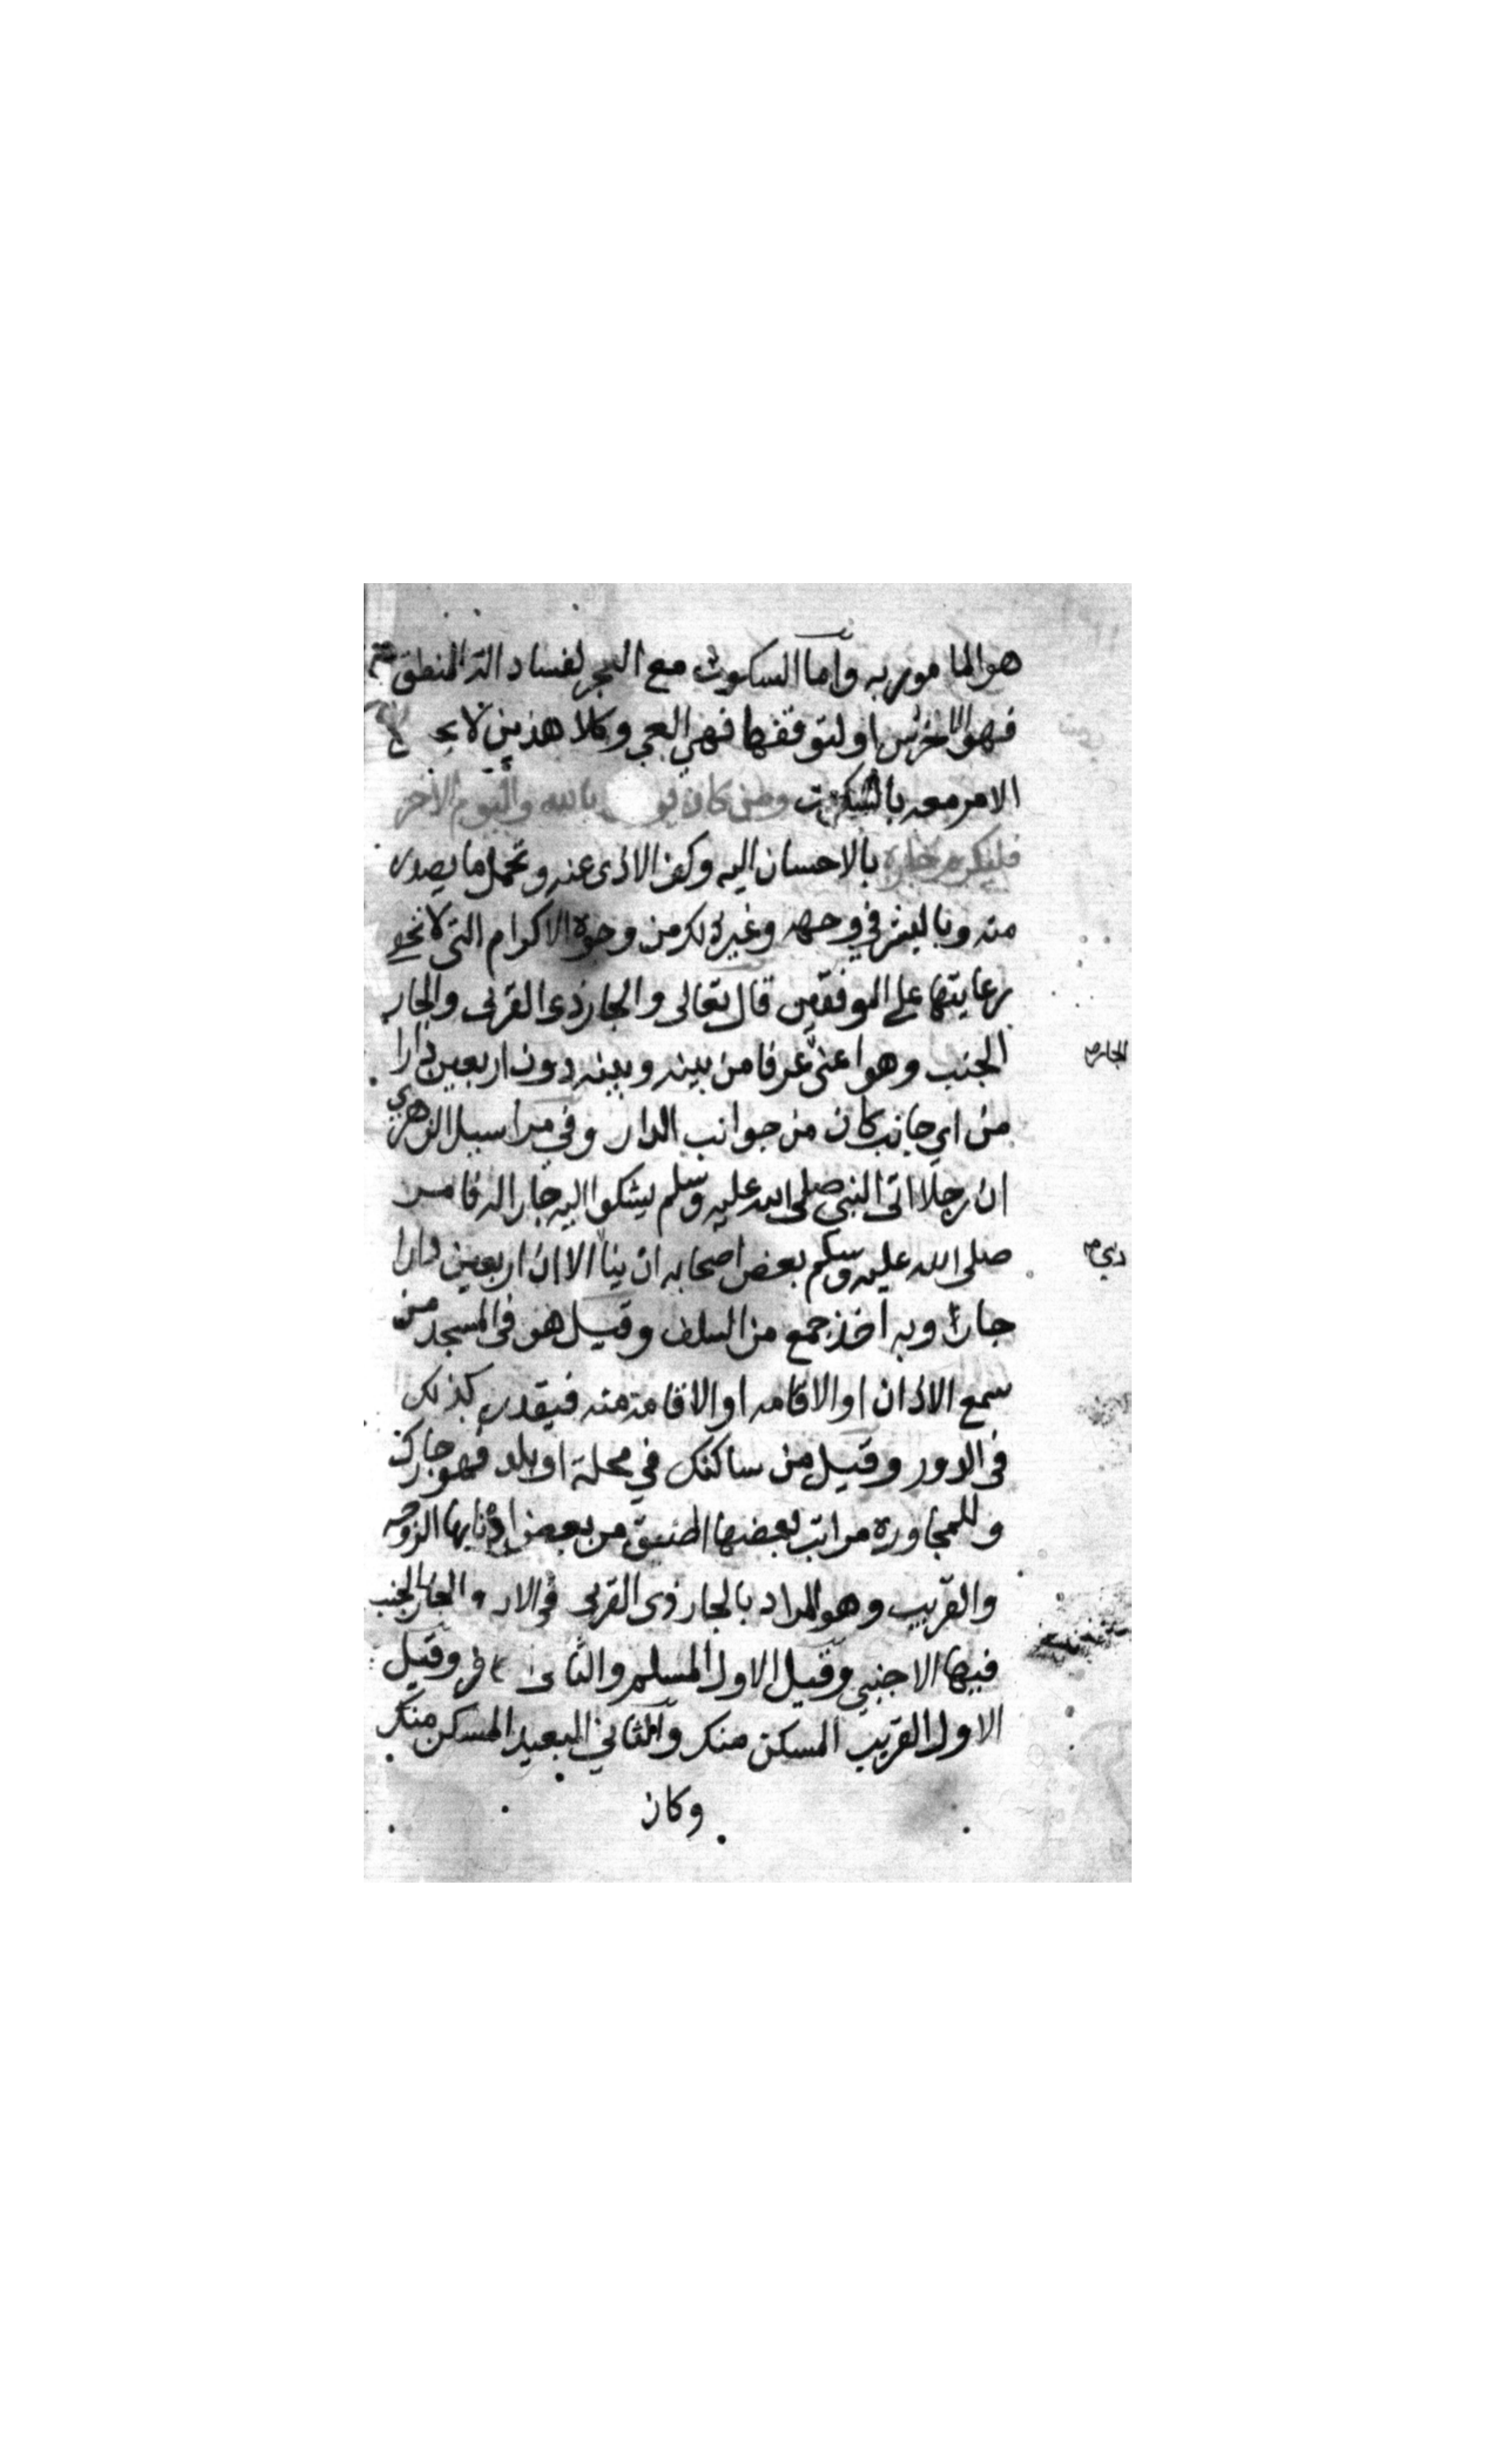 هو المامور به واما السكوت مع العجز لفساد الة المنطق
فهو الاخرس او لتوقفها فهي العي وكلا هذين لا
الامر معه بالسكوت ومن كان بالله واليوم الاخر
فليكرم جاره بالاحسان اليه وكف الاذى عنه وتحمل ما يصدر
منه وبالبشر في وجهه وغير ذلك من وجوه الاكرام التي لا تخفى
رعايتها على الموفقين قال تعالى والجار ذى القربى والجار
الجنب وهو اعنى عرفا من بينه وبينه دون اربعين دارا
الجار
من اي جانب كان من جوانب الدار وفي مراسيل الزهري
ان رجلا اتى النبي صلى الله عليه وسلم يشكوا اليه جارا له فامر
صلى الله عليه وسلم بعض اصحابه ان ينا الا ان اربعين دارا
دي
جارا وبه اخذ جمع من السلف وقيل هو في المسجد من
سمع الاذان او الاقامه او الاقامة منه فيقدر كذلك
في الدور وقيل من ساكنك في محلة او بلد فهو جارك
وللمجاورة مراتب بعضها الصق من بعض ادنايها الزوجه
والقريب وهو المراد بالجار ذى القربى في الاد والجار الجنب
فيها الاجنبي وقيل الاول المسلم والثانى وقيل
الاول القريب المسكن منك والثاني البعيد المسكن منك
وكان